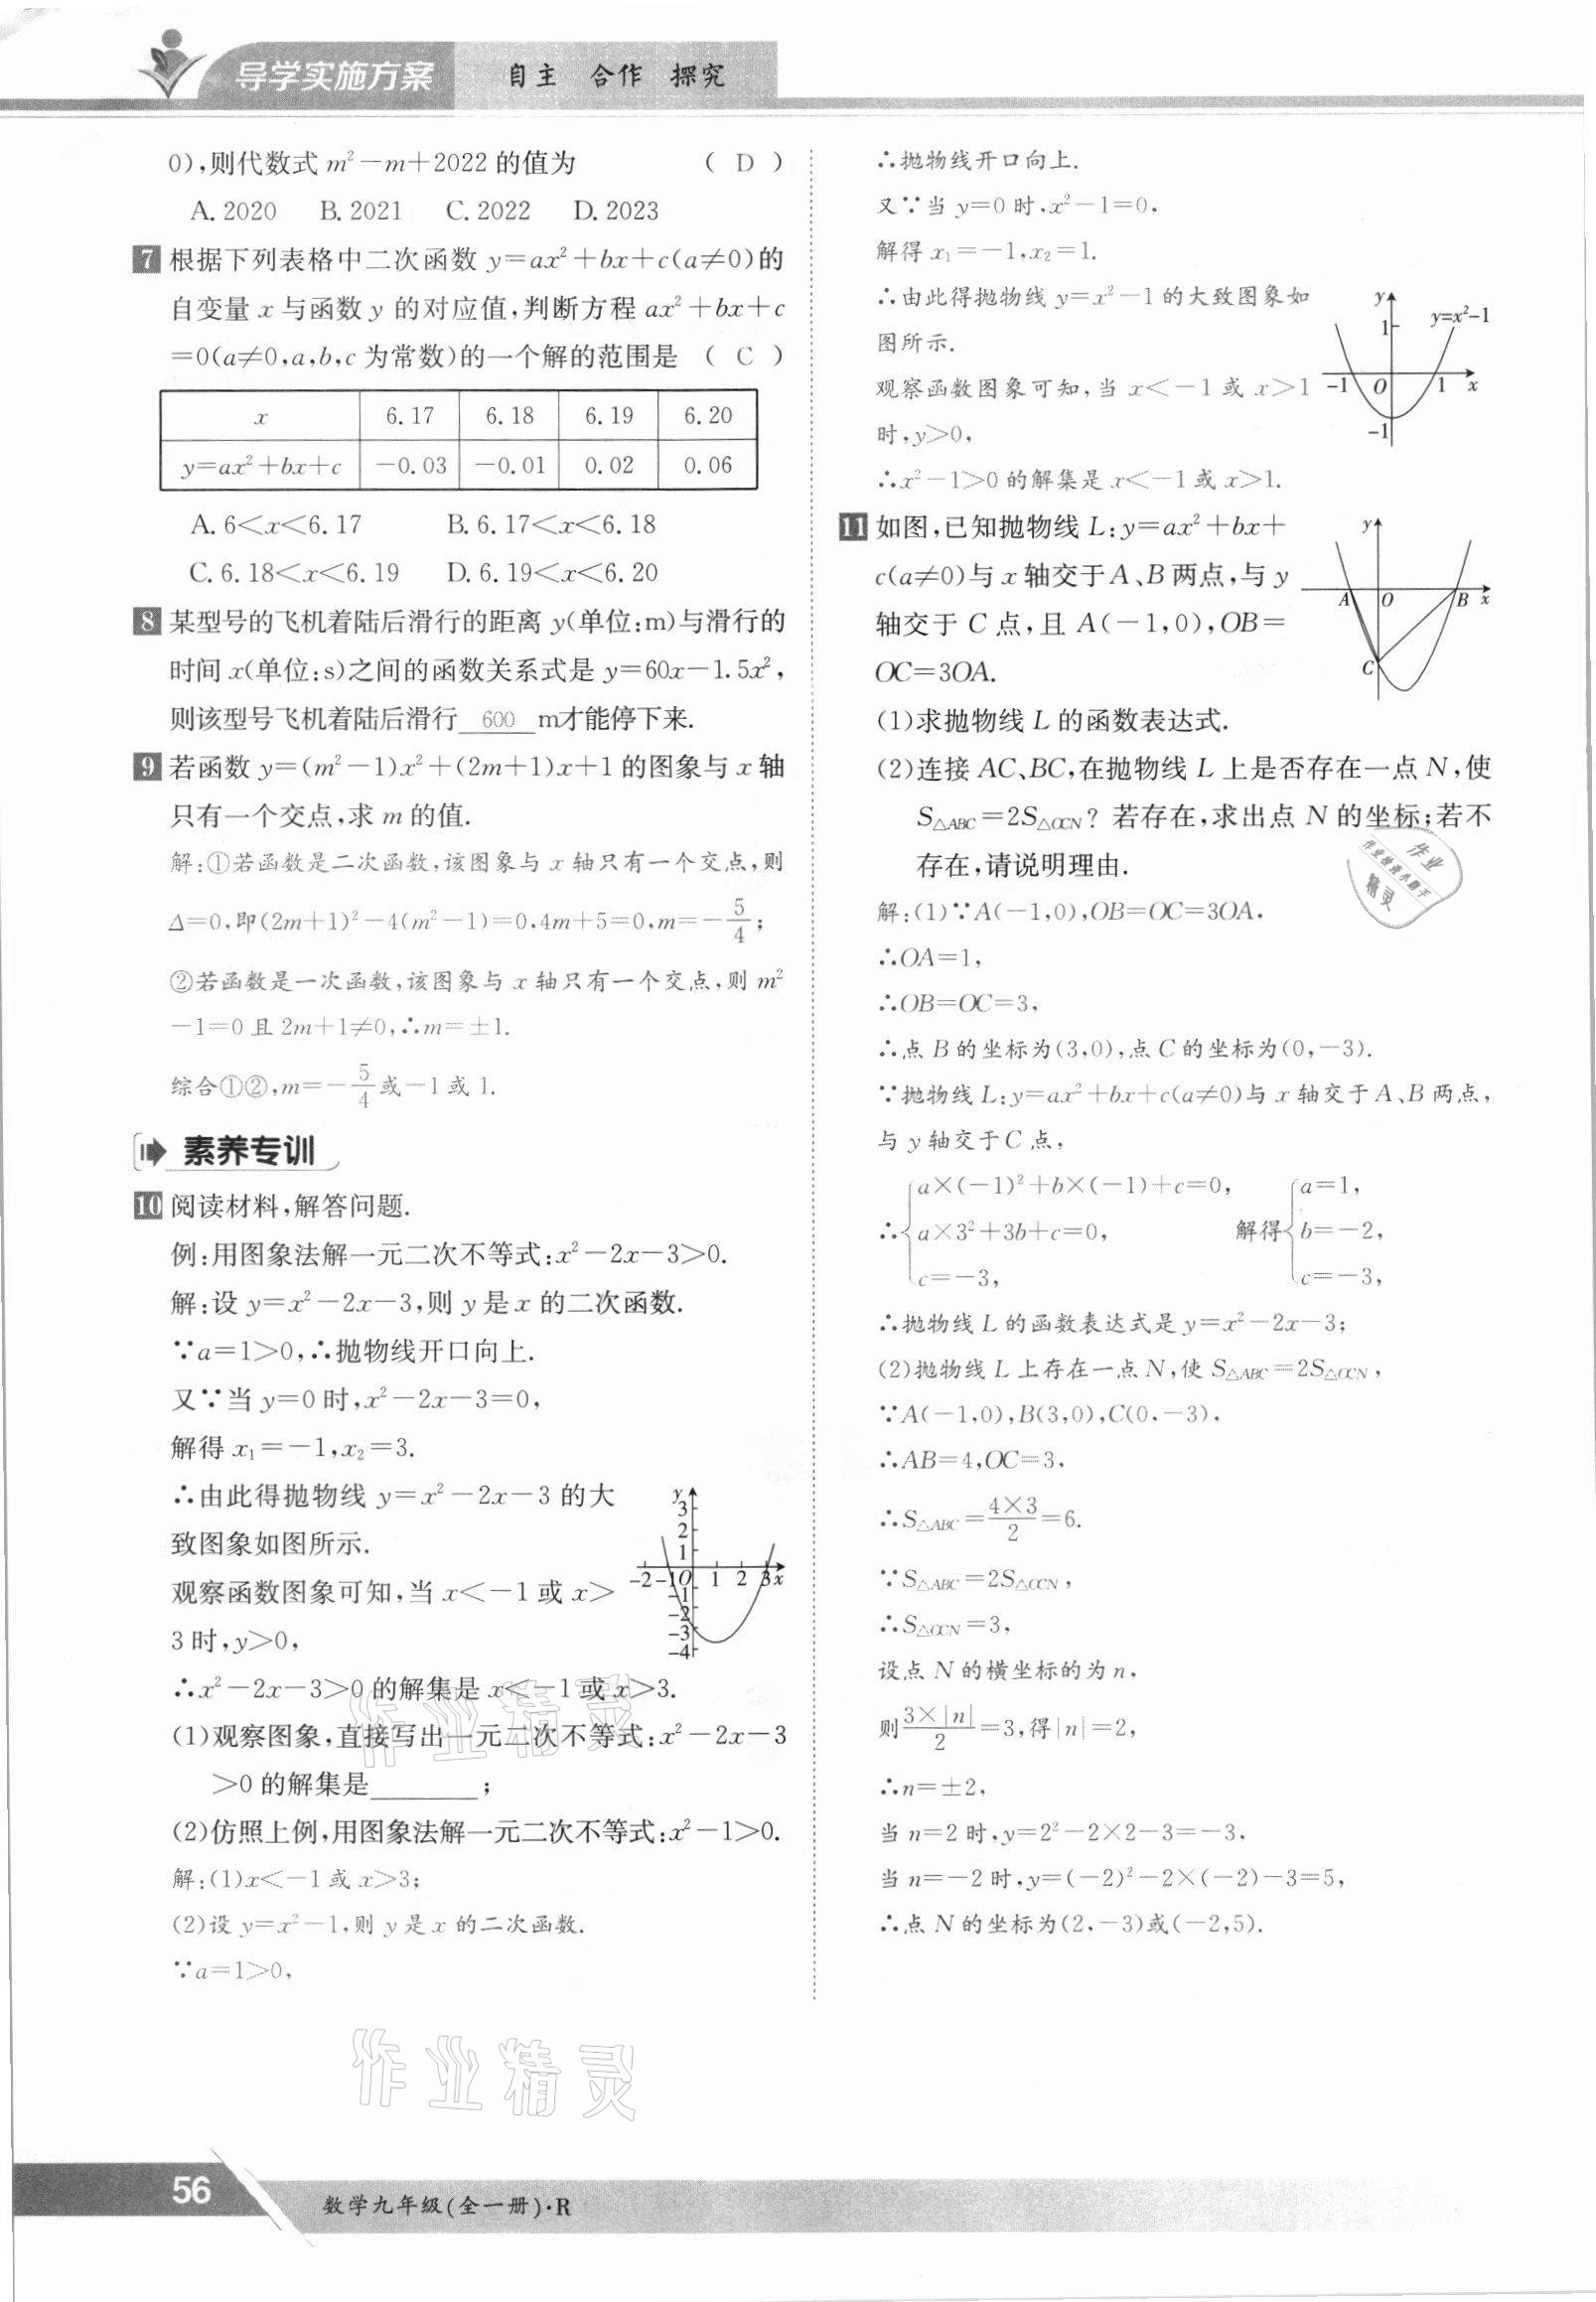 导学实施方案
自主 合作 探究
0),则代数式 m²-m+2022 的值为 ( D )
A. 2020 B. 2021 C. 2022 D. 2023
7 根据下列表格中二次函数 y=ax²+bx+c(a≠0)的
自变量 x 与函数 y 的对应值,判断方程 ax²+bx+c
=0(a≠0,a,b,c 为常数)的一个解的范围是 ( C )
x 6.17 6.18 6.19 6.20
y=ax²+bx+c -0.03 -0.01 0.02 0.06
A. 6<x<6.17 B. 6.17<x<6.18
C. 6.18<x<6.19 D. 6.19<x<6.20
8 某型号的飞机着陆后滑行的距离 y(单位:m)与滑行的
时间 x(单位:s)之间的函数关系式是 y=60x-1.5x²,
则该型号飞机着陆后滑行 600 m才能停下来.
9 若函数 y=(m²-1)x²+(2m+1)x+1 的图象与 x 轴
只有一个交点,求 m 的值.
解:①若函数是二次函数,该图象与 x 轴只有一个交点,则
Δ=0,即(2m+1)²-4(m²-1)=0,4m+5=0,m=-5/4;
②若函数是一次函数,该图象与 x 轴只有一个交点,则 m²
-1=0 且 2m+1≠0,∴m=±1.
综合①②,m=-5/4或-1 或 1.
素养专训
10 阅读材料,解答问题.
例:用图象法解一元二次不等式:x²-2x-3>0.
解:设 y=x²-2x-3,则 y 是 x 的二次函数.
∵a=1>0,∴抛物线开口向上.
又∵当 y=0 时,x²-2x-3=0,
解得 x₁=-1,x₂=3.
∴由此得抛物线 y=x²-2x-3 的大
致图象如图所示.
观察函数图象可知,当 x<-1 或 x>
3 时,y>0,
y
3
2
1
-2 -1 O 1 2 3 x
-1
-2
-3
-4
∴x²-2x-3>0 的解集是 x<-1 或 x>3.
(1)观察图象,直接写出一元二次不等式:x²-2x-3
>0 的解集是________;
(2)仿照上例,用图象法解一元二次不等式:x²-1>0.
解:(1)x<-1 或 x>3;
(2)设 y=x²-1,则 y 是 x 的二次函数.
∵a=1>0,
∴抛物线开口向上.
又∵当 y=0 时,x²-1=0,
解得 x₁=-1,x₂=1.
∴由此得抛物线 y=x²-1 的大致图象如
图所示.
观察函数图象可知,当 x<-1 或 x>1
时,y>0,
∴x²-1>0 的解集是 x<-1 或 x>1.
y
1
y=x²-1
-1 O 1 x
-1
11 如图,已知抛物线 L:y=ax²+bx+
c(a≠0)与 x 轴交于 A、B 两点,与 y
轴交于 C 点,且 A(-1,0),OB=
OC=3OA.
y
A O B x
C
(1)求抛物线 L 的函数表达式.
(2)连接 AC、BC,在抛物线 L 上是否存在一点 N,使
S△ABC=2S△OCN? 若存在,求出点 N 的坐标;若不
存在,请说明理由.
解:(1)∵A(-1,0),OB=OC=3OA,
∴OA=1,
∴OB=OC=3,
∴点 B 的坐标为(3,0),点 C 的坐标为(0,-3).
∵抛物线 L:y=ax²+bx+c(a≠0)与 x 轴交于 A、B 两点,
与 y 轴交于 C 点,
a×(-1)²+b×(-1)+c=0, a=1,
∴{a×3²+3b+c=0, 解得{b=-2,
c=-3, c=-3,
∴抛物线 L 的函数表达式是 y=x²-2x-3;
(2)抛物线 L 上存在一点 N,使 S△ABC=2S△OCN,
∵A(-1,0),B(3,0),C(0,-3),
∴AB=4,OC=3,
∴S△ABC=4×3/2=6.
∵S△ABC=2S△OCN,
∴S△OCN=3,
设点 N 的横坐标的为 n,
则3×|n|/2=3,得|n|=2,
∴n=±2,
当 n=2 时,y=2²-2×2-3=-3,
当 n=-2 时,y=(-2)²-2×(-2)-3=5,
∴点 N 的坐标为(2,-3)或(-2,5).
作业
作业检查小助手
精灵
作业精灵
作业精灵
56
数学九年级(全一册)·R